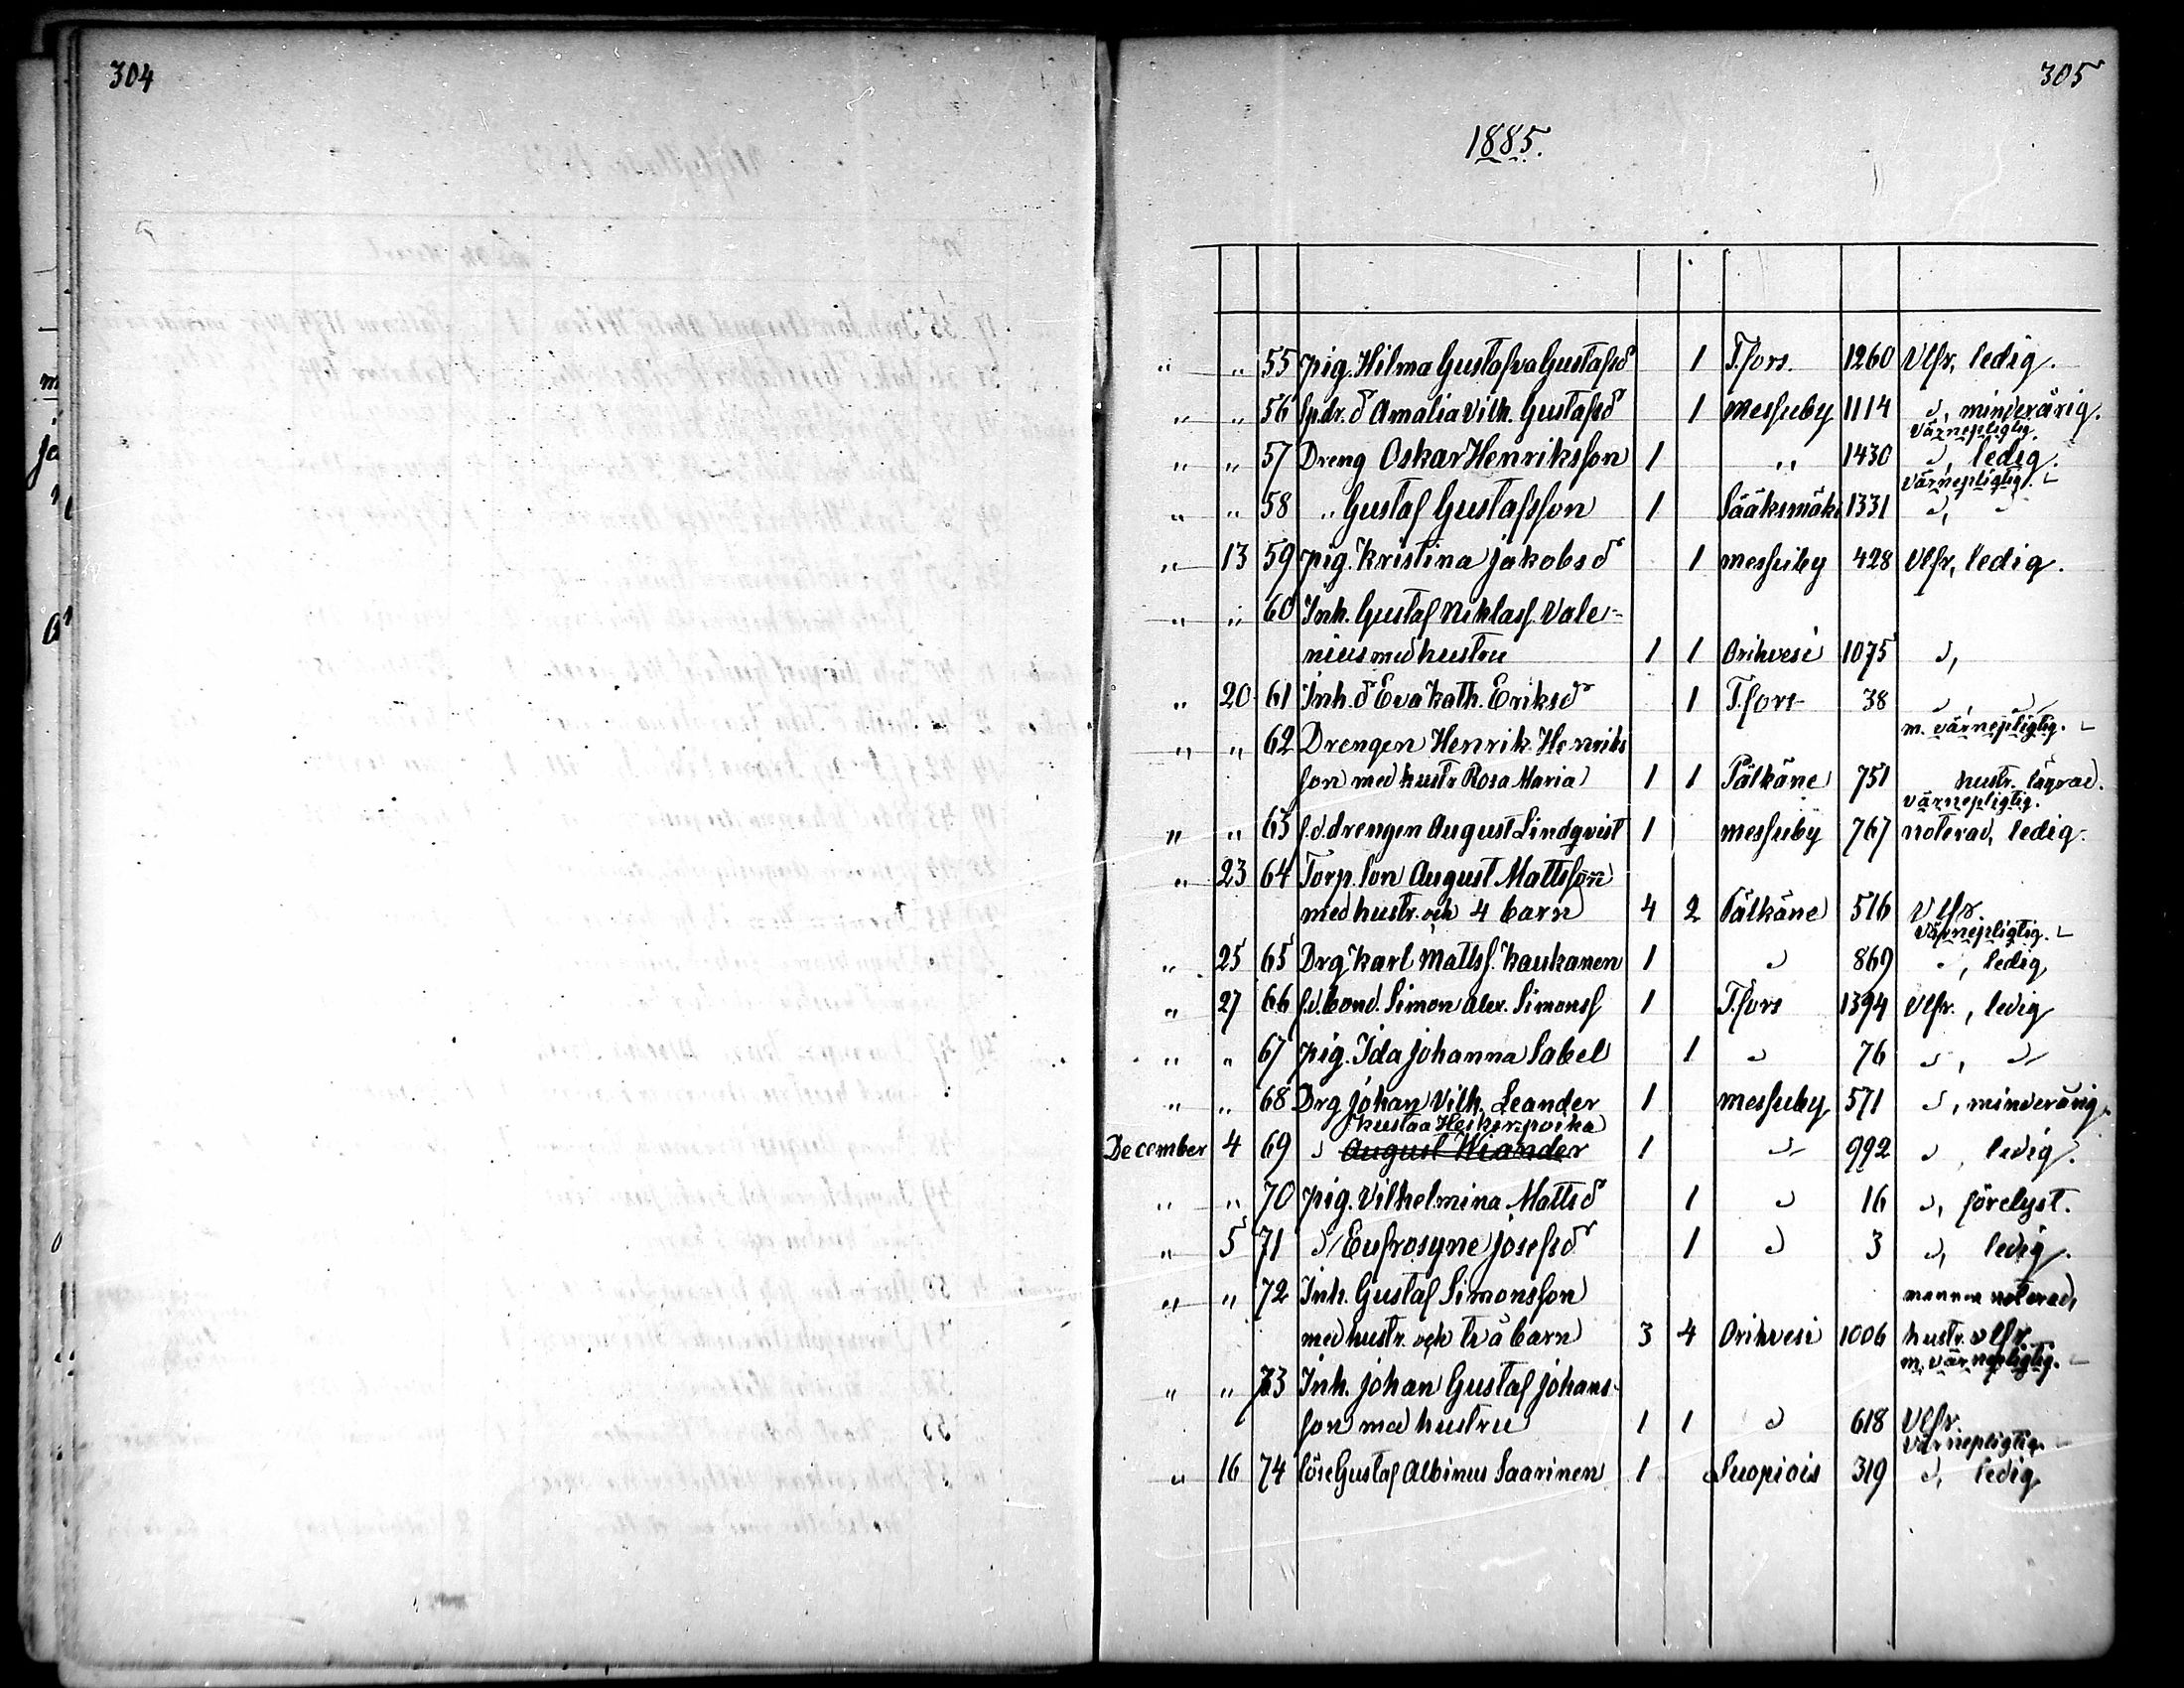 304
305
1885.
" " 55 pig. Hilma Gustafva Gustafsd 1 T.fors. 1260 Vlfr, ledig.
" " 56 Spdr. d Amalia Vilh. Gustafsd 1 Messuby 1114 d, minderårig.
värnepligtig.
" " 57 Dreng Oskar Henriksson 1 " 1430 d, ledig.
värnepligtig.
" " 58 " Gustaf Gustafsson 1 Sääksmäki 1331 d, d
" 13 59 pig. Kristina Jakobsd 1 Messuby 428 Vlfr, ledig.
" " 60 Inh. Gustaf Niklass. Vale-
nius med hustru 1 1 Orihvesi 1075 d,
" 20 61 Inh. d Eva Kath. Eriksd 1 T.fors 38 d, d
m. värnepligtig.
" " 62 Drengen Henrik Henriks
son med hustr Rosa Maria 1 1 Pälkäne 751 hustr. lägrad.
värnepligtig.
" " 63 f.d. drengen August Lindqvist 1 Messuby 767 noterad, ledig.
" 23 64 Torp. son August Mattsson
med hustr. och 4 barn 4 2 Pälkäne 516 Vlfr.
värnepligtig.
" 25 65 Drg Karl Mattss. Kaukanen 1 d 869 d, ledig
" 27 66 f.d. bond. Simon Alex. Simonss 1 T.fors 1394 Vlfr., ledig
" " 67 pig. Ida Johanna Sabel 1 d 76 d, d
" " 68 Drg Johan Vilh. Leander 1 Messuby 571 d, minderårig.
Kustaa Heikinpoika
December 4 69 d August Wiander 1 d 992 d, ledig.
" " 70 pig. Vilhelmina Mattsd 1 d 16 d, förelyst.
" 5 71 d Eufrosyne Josefsd 1 d 3 d, ledig.
" " 72 Inh. Gustaf Simonsson mannen noterad,
med hustr. och två barn 3 4 Orihvesi 1006 hustr. vlfr.
m. värnepligtig.
" " 73 Inh. Johan Gustaf Johans-
son med hustru 1 1 d 618 Vlfr.
värnepligtig.
" 16 74 löse Gustaf Albinus Saarinen 1 Luopiois 319 d, ledig